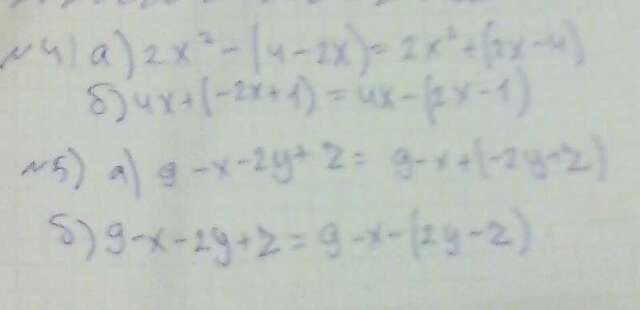 №4) а) 2x² - (4 - 2x) = 2x² + (2x - 4)
б) 4x + (-2x + 1) = 4x - (2x - 1)
№5) а) 9 - x - 2y + z = 9 - x + (-2y - z)
б) 9 - x - 2y + z = 9 - x - (2y - z)